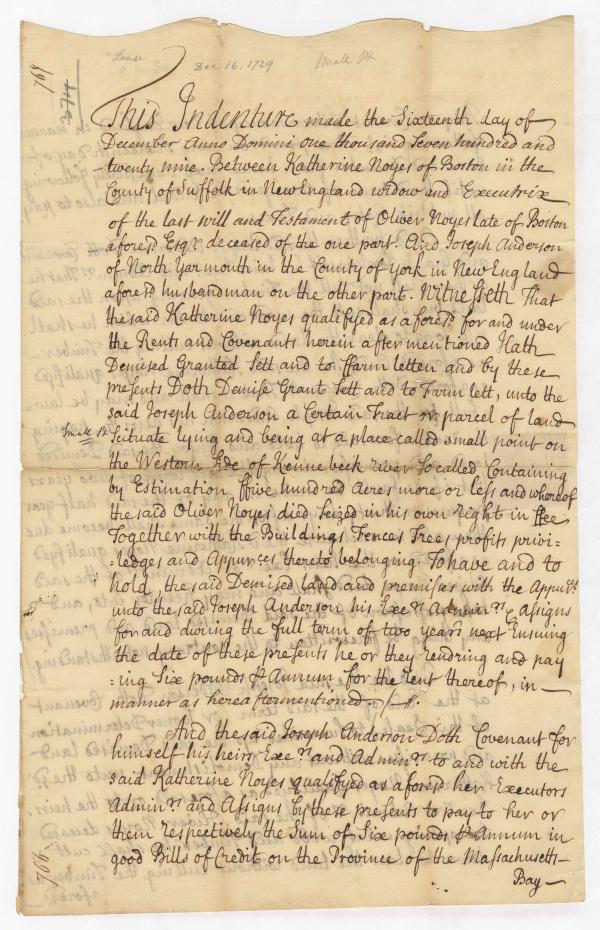 Lease
Dec. 16, 1729
Small Pt
769
274
This Indenture made the Sixteenth day of
December Anno Domini one thousand Seven hundred and
twenty nine. Between Katherine Noyes of Boston in the
County of Suffolk in New England widow and Executrix
of the last will and Testament of Oliver Noyes late of Boston
afores.d Esq.r deceased of the one part. And Joseph Anderson
of North Yarmouth in the County of York in New England
afores.d husbandman on the other part. Witnesseth That
the said Katherine Noyes qualifyed as afores.d for and under
the Rents and Covenants herein after mentioned Hath
Demised Granted Sett and to ffarm letten and by these
presents Doth Demise Grant Sett and to Farm lett, unto the
said Joseph Anderson a Certain Tract or parcel of land
Small Pt.
Scituate lying and being at a place called small point on
the Western Side of Kennebeck river so called Containing
by Estimation ffive hundred Acres more or less and whereof
the said Oliver Noyes died Seized in his own right in ffee
Together with the Buildings Fences Trees profits privi-
:ledges and Appur.ces thereto belonging. To have and to
hold, the said Demised land and premises with the Appu.ts
unto the said Joseph Anderson his Exe.rs Admin.rs & Assigns
for and during the full term of two years next Ensuing
the date of these presents he or they rendring and pay
:ing Six pounds P Annum for the rent thereof, in
manner as hereaftermentioned.
And the said Joseph Anderson Doth Covenant for
himself his heirs Exe.rs and Admin.rs to and with the
said Katherine Noyes qualifyed as afores.d her Executors
Admin.rs and Assigns by these presents to pay to her or
them respectively the Sum of Six pounds P Annum in
good Bills of Credit on the Province of the Massachusetts
Bay
766